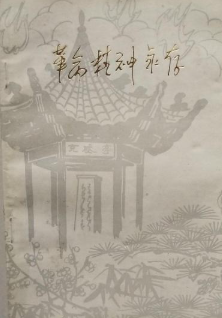 革命精神永存